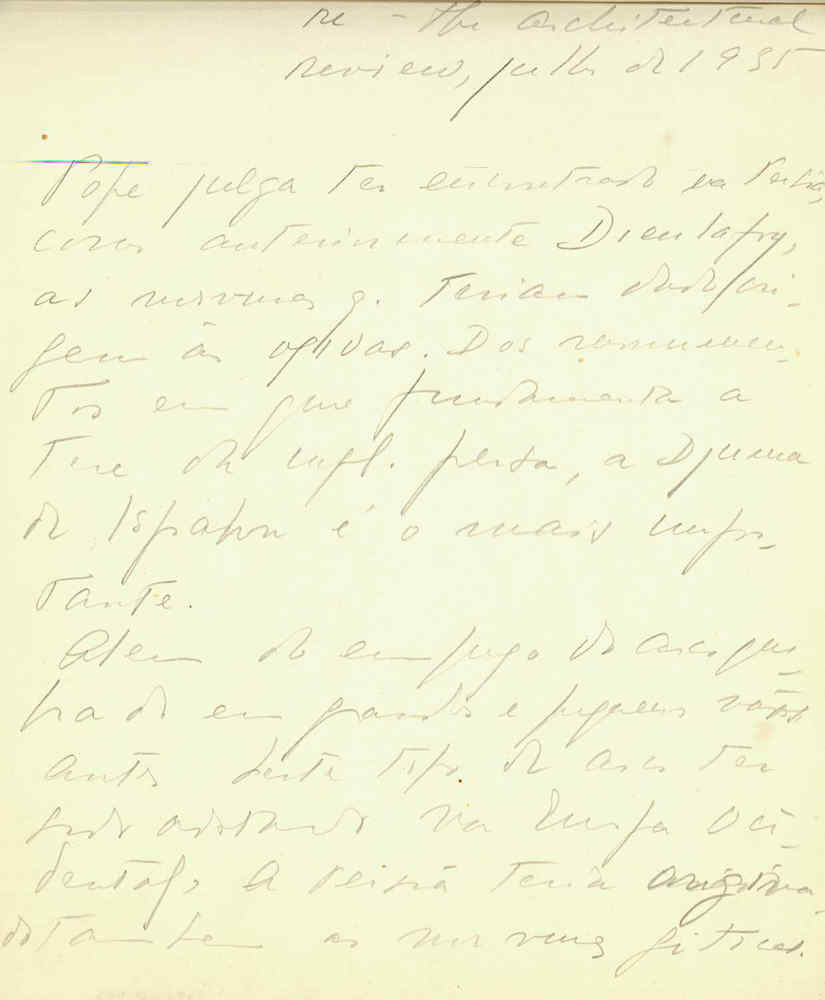 re - the architectural
review, julho de 1935
Pope julga ter encontrado na Persia,
como anteriormente Dieulafoy,
as nervuras q. teriam dado ori-
gem às ogivas. Dos monumen-
tos em que fundamenta a
tese da infl. persa, a Djuma
de Ispahan é o mais impor-
tante.
Alem do emprego do arco que-
brado em grandes e pequenos vãos
antes deste tipo de arco ter
sido adotado na Europa Oci-
dental, a Persia teria origina-
do tambem as nervuras goticas.